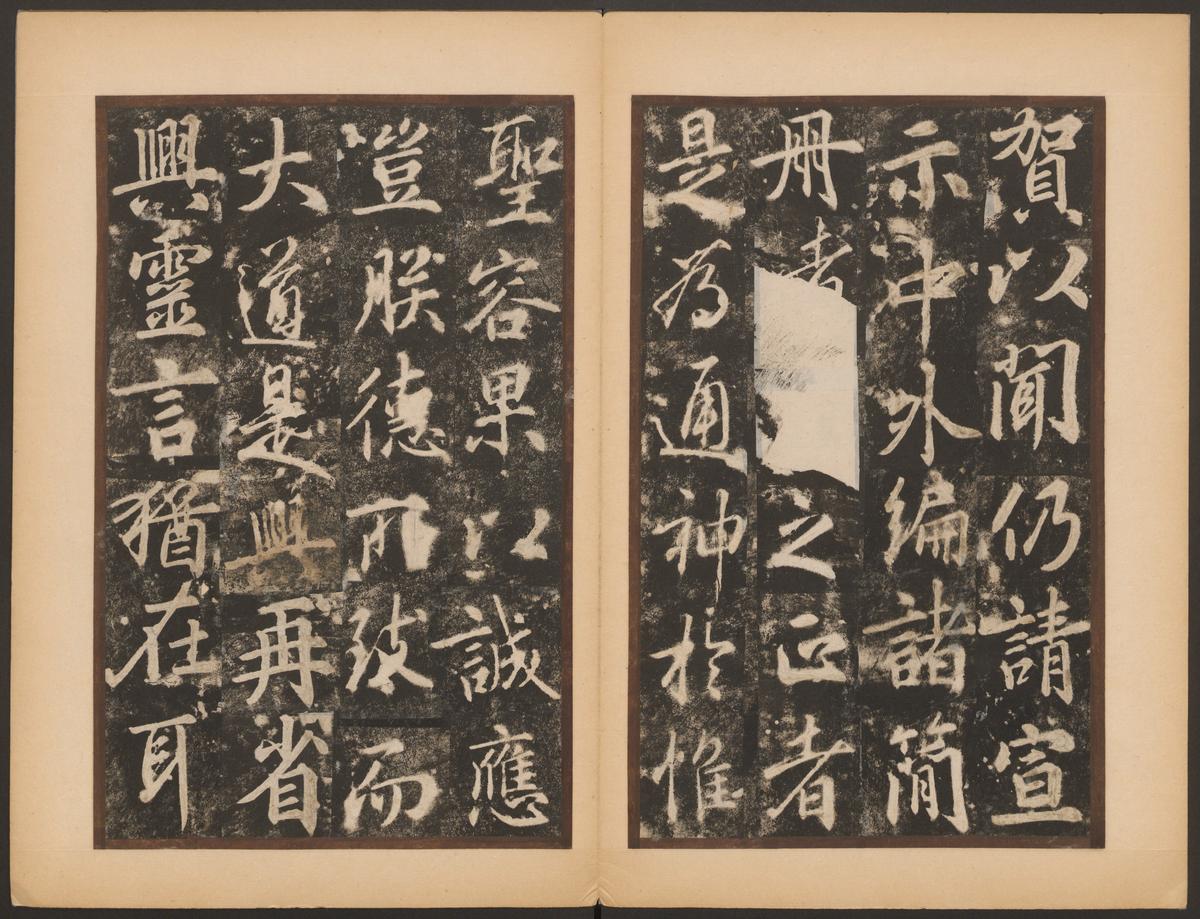 賀以聞仍請宣
示中外編諸簡
冊者之正者
是為通神於惟
聖容果以誠應
豈朕德所致而
大道是興再省
興靈言猶在耳